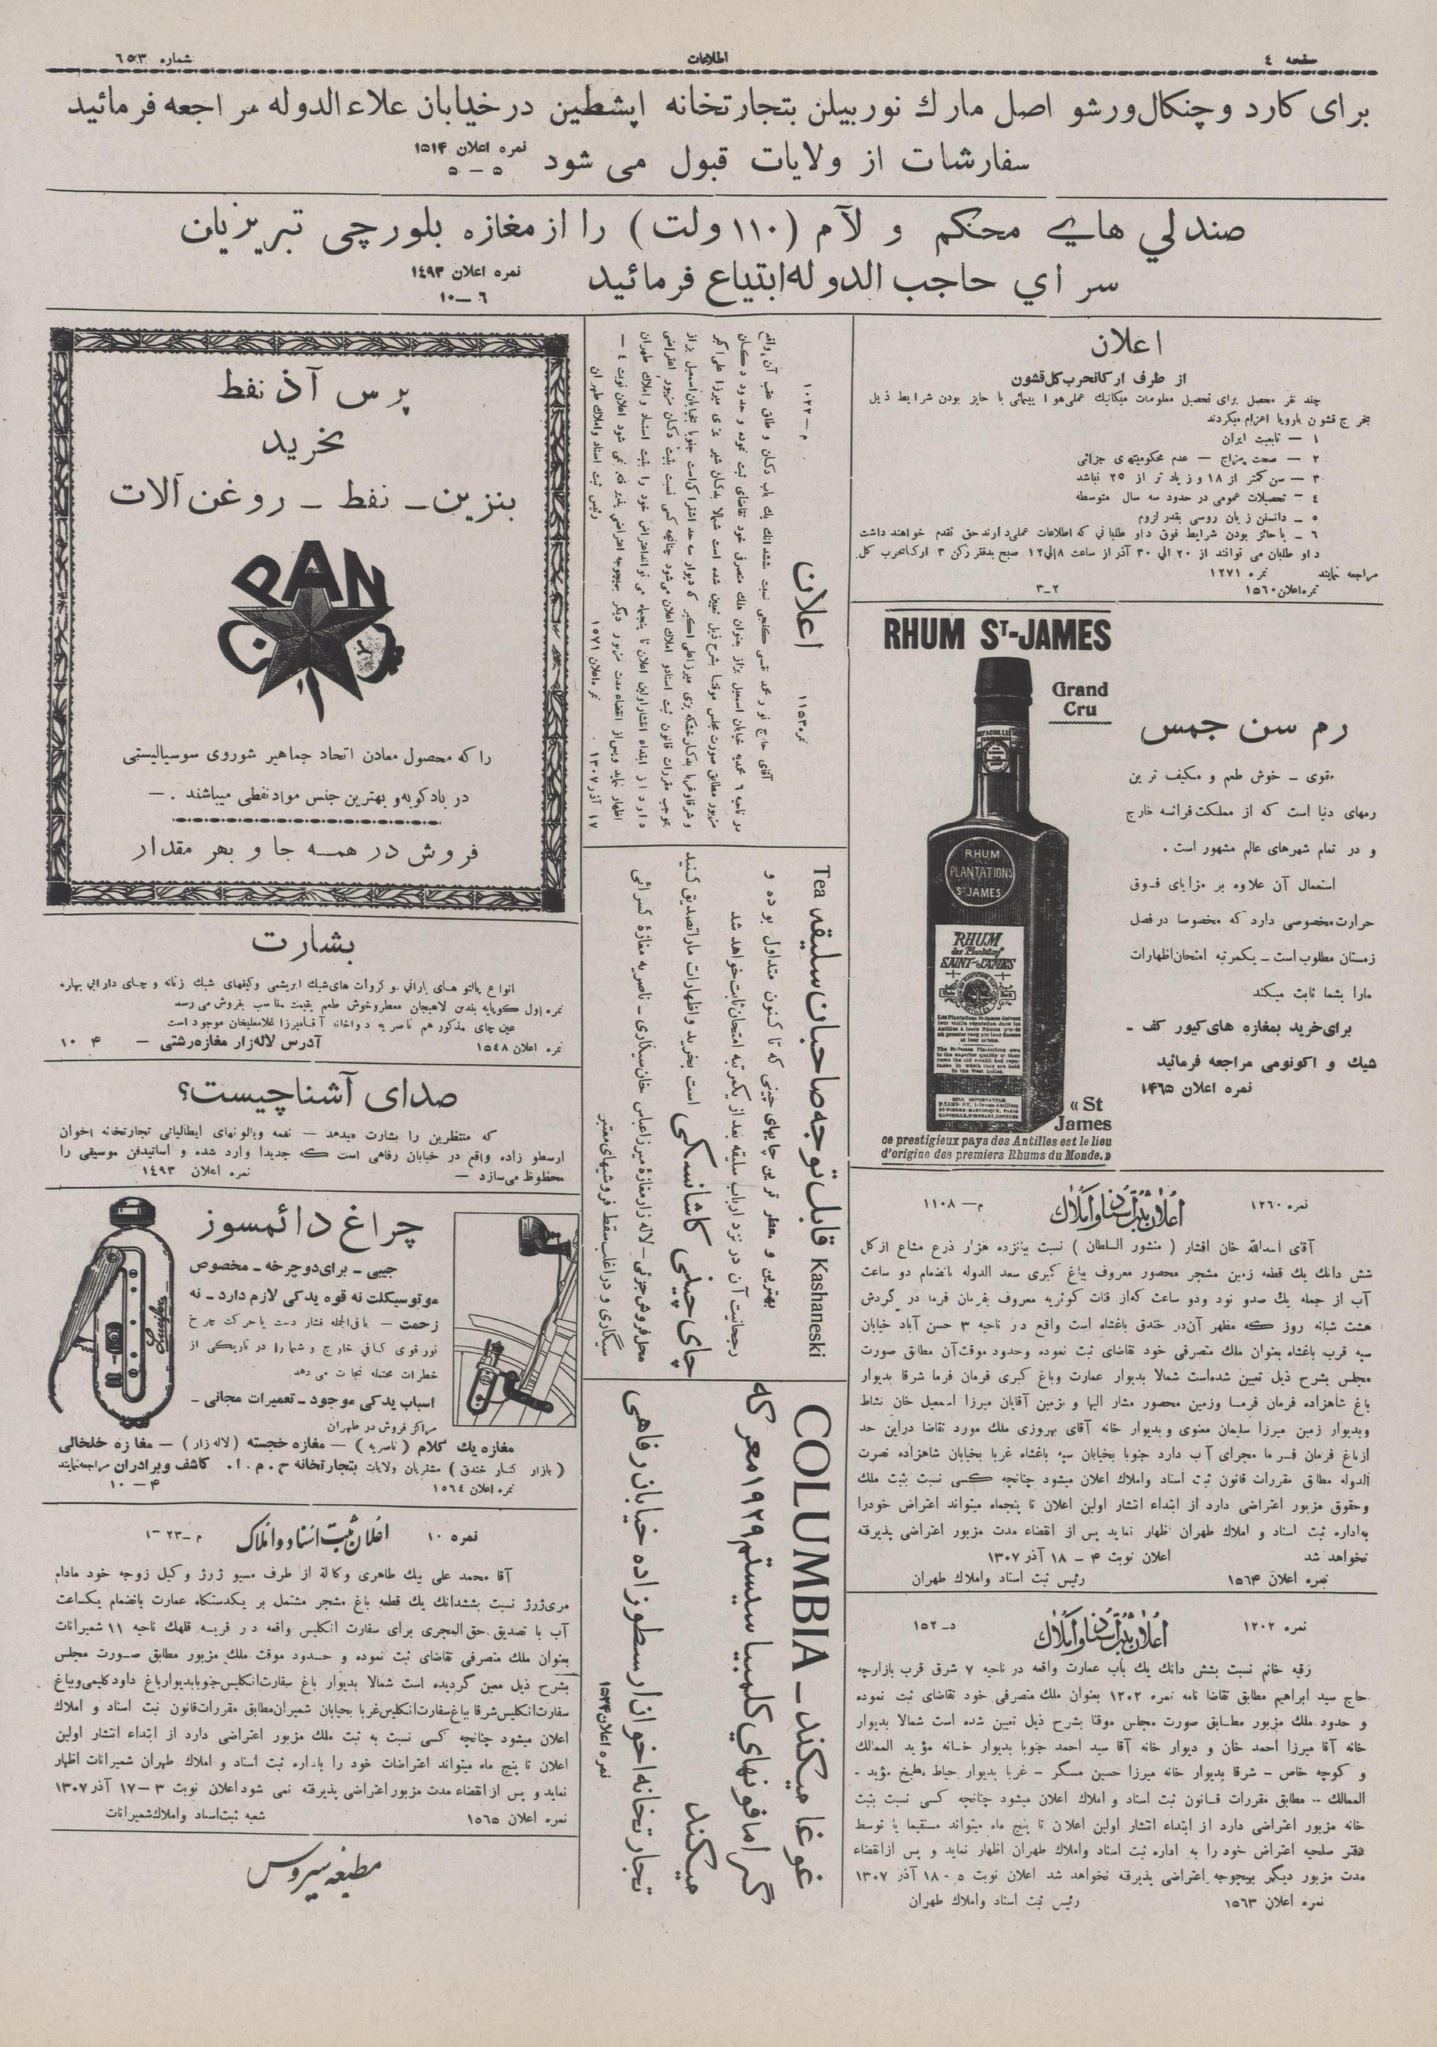 صفحه ٤
اطلاعات
شماره ٦٥٣
برای کارد و چنکال ورشو اصل مارك نوربیلن بتجارتخانه اپشطین در خیابان علاءالدوله مراجعه فرمائید
سفارشات از ولایات قبول می شود
نمره اعلان ١٥١۴
٥ – ٥
صندلي هایے محکم و لآم (١١٠ ولت) را از مغازه بلورچی تبریزیان
سرای حاجب الدوله ابتیاع فرمائید
نمره اعلان ١٤٩٣
٦ – ١٠
اعلان
از طرف ارکانحرب کل قشون
چند نفر محصل برای تحصیل معلومات میکانیك عملی هوا پیمائی با حایز بودن شرایط ذیل
بخرج قشون باروپا اعزام میگردند
١ – تابعیت ایران
٢ – صحت مزاج – عدم محکومیتهای جزائی
٣ – سن کمتر از ١٨ و زیاد تر از ٢٥ نباشد
٤ – تحصیلات عمومی در حدود سه سال متوسطه
٥ – دانستن زبان روسی بقدر لزوم
٦ – با حائز بودن شرایط فوق داو طلبانی که اطلاعات عملی دارند حق تقدم خواهند داشت
داو طلبان می توانند از ٢٠ الی ٣٠ آذر از ساعت ٨ الی ١٢ صبح بدفتر رکن ٣ ارکانحرب کل
مراجعه نمایند نمره ١٢٧١
نمره اعلان ١٥٦٠ ٢–٣
RHUM ST-JAMES
Grand
Cru
RHUM
PLANTATIONS
ST JAMES
RHUM
des Plantations
SAINT-JAMES
« St
James
ce prestigieux pays des Antilles est le lieu
d'origine des premiers Rhums du Monde. »
رم سن جمس
مقوی – خوش طعم و مکیف ترین
رمهای دنیا است که از مملکت فرانسه خارج
و در تمام شهرهای عالم مشهور است .
استعمال آن علاوه بر مزایای فوق
حرارت مخصوصی دارد که مخصوصا در فصل
زمستان مطلوب است – یکمرتبه امتحان اظهارات
مارا بشما ثابت میکند
برای خرید بمغازه های کیور کف –
شیك و اکونومی مراجعه فرمائید
نمره اعلان ١۴٦٥
نمره ١٢٦٠ اعلان ثبت اسناد و املاك م – ١١٠٨
آقای اسدالله خان افشار ( منشور السلطان ) نسبت بپانزده هزار ذرع مشاع از کل
شش دانك یك قطعه زمین مشجر محصور معروف بباغ کبری سعد الدوله بانضمام دو ساعت
آب از جمله یك صدو نود ودو ساعت که از قنات کوثریه معروف بفرمان فرما در گردش
هشت شبانه روز که مظهر آن در خندق باغشاه است واقع در ناحیه ٣ حسن آباد خیابان
سپه قرب باغشاه بعنوان ملك متصرفی خود تقاضای ثبت نموده وحدود موقت آن مطابق صورت
مجلس بشرح ذیل تعیین شده است شمالا بدیوار عمارت وباغ کبری فرمان فرما شرقا بدیوار
باغ شاهزاده فرمان فرما وزمین محصور مشار الیها و زمین آقایان میرزا اسمعیل خان نشاط
وبدیوار زمین میرزا سلیمان معنوی و بدیوار خانه آقای بهروزی ملك مورد تقاضا دراین حد
از باغ فرمان فرما مجرای آب دارد جنوبا بخیابان سپه باغشاه غربا بخیابان شاهزاده نصرت
الدوله مطابق مقررات قانون ثبت اسناد واملاك اعلان میشود چنانچه کسی نسبت بثبت ملك
وحقوق مزبور اعتراضی دارد از ابتداء انتشار اولین اعلان تا پنجماه میتواند اعتراض خودرا
به اداره ثبت اسناد و املاك طهران اظهار نماید پس از انقضاء مدت مزبور اعتراضی پذیرفته
نخواهد شد اعلان نوبت ۴ – ١٨ آذر ١٣٠٧
نمره اعلان ١٥٦۴ رئیس ثبت اسناد واملاك طهران
نمره ١٢٠٢ اعلان ثبت اسناد و املاك د – ١٥٢
رقیه خانم نسبت بشش دانك یك باب عمارت واقعه در ناحیه ٧ شرق قرب بازارچه
حاج سید ابراهیم مطابق تقاضا نامه نمره ١٢٠٢ بعنوان ملك متصرفی خود تقاضای ثبت نموده
و حدود ملك مزبور مطابق صورت مجلس موقتا بشرح ذیل تعیین شده است شمالا بدیوار
خانه آقا میرزا احمد خان و دیوار خانه آقا سید احمد جنوبا بدیوار خانه مؤید الممالك
و کوچه خاص – شرقا بدیوار خانه میرزا حسین مسگر – غربا بدیوار حیاط مطبخ مؤید –
الممالك – مطابق مقررات قانون ثبت اسناد و املاك اعلان میشود چنانچه کسی نسبت بثبت
خانه مزبور اعتراضی دارد از ابتداء انتشار اولین اعلان تا پنج ماه میتواند مستقیما یا توسط
دفتر صلحیه اعتراض خود را به اداره ثبت اسناد واملاك طهران اظهار نماید و پس از انقضاء
مدت مزبور دیگر بهیچوجه اعتراضی پذیرفته نخواهد شد اعلان نوبت ٥ – ١٨ آذر ١٣٠٧
نمره اعلان ١٥٦٣ رئیس ثبت اسناد واملاك طهران
نمره ١١٥٣ اعلان م – ١٠٢٢
رئیس ثبت اسناد واملاك طهران
نمره اعلان ١٥٧١
١٧ آذر ١٣٠٧
Tea قابل توجه صاحبان سلیقه Kashaneski
بهترین و معطر ترین چایهای چینی که تا کنون متداول بوده و
رجحانیت آن در نزد ارباب سلیقه بعد از یکمرتبه امتحان ثابت خواهد شد
چای چینی کاشانسکی است بخرید واظهارات ماراتصدیق کنید
محل فروش جزئی – لاله زار مغازه میرزا عباس خان سیگاری – ناصریه مغازهٔ کسرائی
سیگاری و در اغلب سقط فروشیهای معتبر
COLUMBIA – غوغا میکند
گرامافونهای کلمبیا سیستم ١٩٢٩ معرکه
میکند
تجارتخانه اخوان ارسطوزاده خیابان رفاهی
نمره اعلان ١٥٣۴
پرس آذ نفط
بخرید
بنزین – نفط – روغن آلات
PAN
را که محصول معادن اتحاد جماهیر شوروی سوسیالیستی
در بادکوبه و بهترین جنس مواد نفطی میباشند . –
فروش در همه جا و بهر مقدار
بشارت
انواع پالتو های بارانی و کروات های شیك ابریشمی وکیفهای شیك زنانه و چای دارائی بهاره
نمره اول کوپایه بندی لاهیجان معطر و خوش طعم بقیمت مناسب بفروش می رسد
عین چای مذکور هم ناصریه دواخانه آقا میرزا غلامعلیخان موجود است
نمره اعلان ١٥٤٨ آدرس لاله زار مغازه رشتی – ۴ ١٠
صدای آشنا چیست؟
که منتظرین را بشارت میدهد – نغمه ویالونهای ایطالیائی تجارتخانه اخوان
ارسطو زاده واقع در خیابان رفاهی است که جدیدا وارد شده و اساتیدفن موسیقی را
محظوظ می سازد – نمره اعلان ١٤٩٣
چراغ دائمسوز
جیبی – برای دوچرخه – مخصوص
موتوسیکلت نه قوه یدکی لازم دارد – نه
زحمت – با فی الجمله فشار دست یا حرکت چرخ
نور قوی کافی خارج و شما را در تاریکی از
خطرات محتمله نجات می دهد
اسباب یدکی موجود – تعمیرات مجانی –
مراکز فروش در طهران
مغازه یك کلام ( ناصریه ) – مغازه خجسته ( لاله زار ) – مغازه خلخالی
( بازار کنار خندق ) مشتریان ولایات بتجارتخانه ح . م . ا . کاشف وبرادران مراجعه نمایند
نمره اعلان ١٥٦٤ ۴ – ١٠
نمره ١٠ اعلان ثبت اسناد و املاك م – ٢٣
آقا محمد علی بیك طاهری وکالة از طرف مسیو ژرژ و کیل زوجه خود مادام
مری ژرژ نسبت بششدانك یك قطعه باغ مشجر مشتمل بر یکدستکاه عمارت بانضمام یکساعت
آب با تصدیق حق المجری برای سفارت انکلیس واقعه در قریه قلهك ناحیه ١١ شمیرانات
بعنوان ملك متصرفی تقاضای ثبت نموده و حدود موقت ملك مزبور مطابق صورت مجلس
بشرح ذیل معین گردیده است شمالا بدیوار باغ سفارت انکلیس جنوبا بدیوار باغ داود کلیمی وبباغ
سفارت انکلیس شرقا بباغ سفارت انکلیس غربا بخیابان شمیران مطابق مقررات قانون ثبت اسناد و املاك
اعلان میشود چنانچه کسی نسبت به ثبت ملك مزبور اعتراضی دارد از ابتداء انتشار اولین
اعلان تا پنج ماه میتواند اعتراضات خود را باداره ثبت اسناد و املاك طهران شمیرانات اظهار
نماید و پس از انقضاء مدت مزبور اعتراضی پذیرفته نمی شود اعلان نوبت ٣ – ١٧ آذر ١٣٠٧
نمره اعلان ١٥٦٥ شعبه ثبت اسناد واملاك شمیرانات
مطبعه سیروس